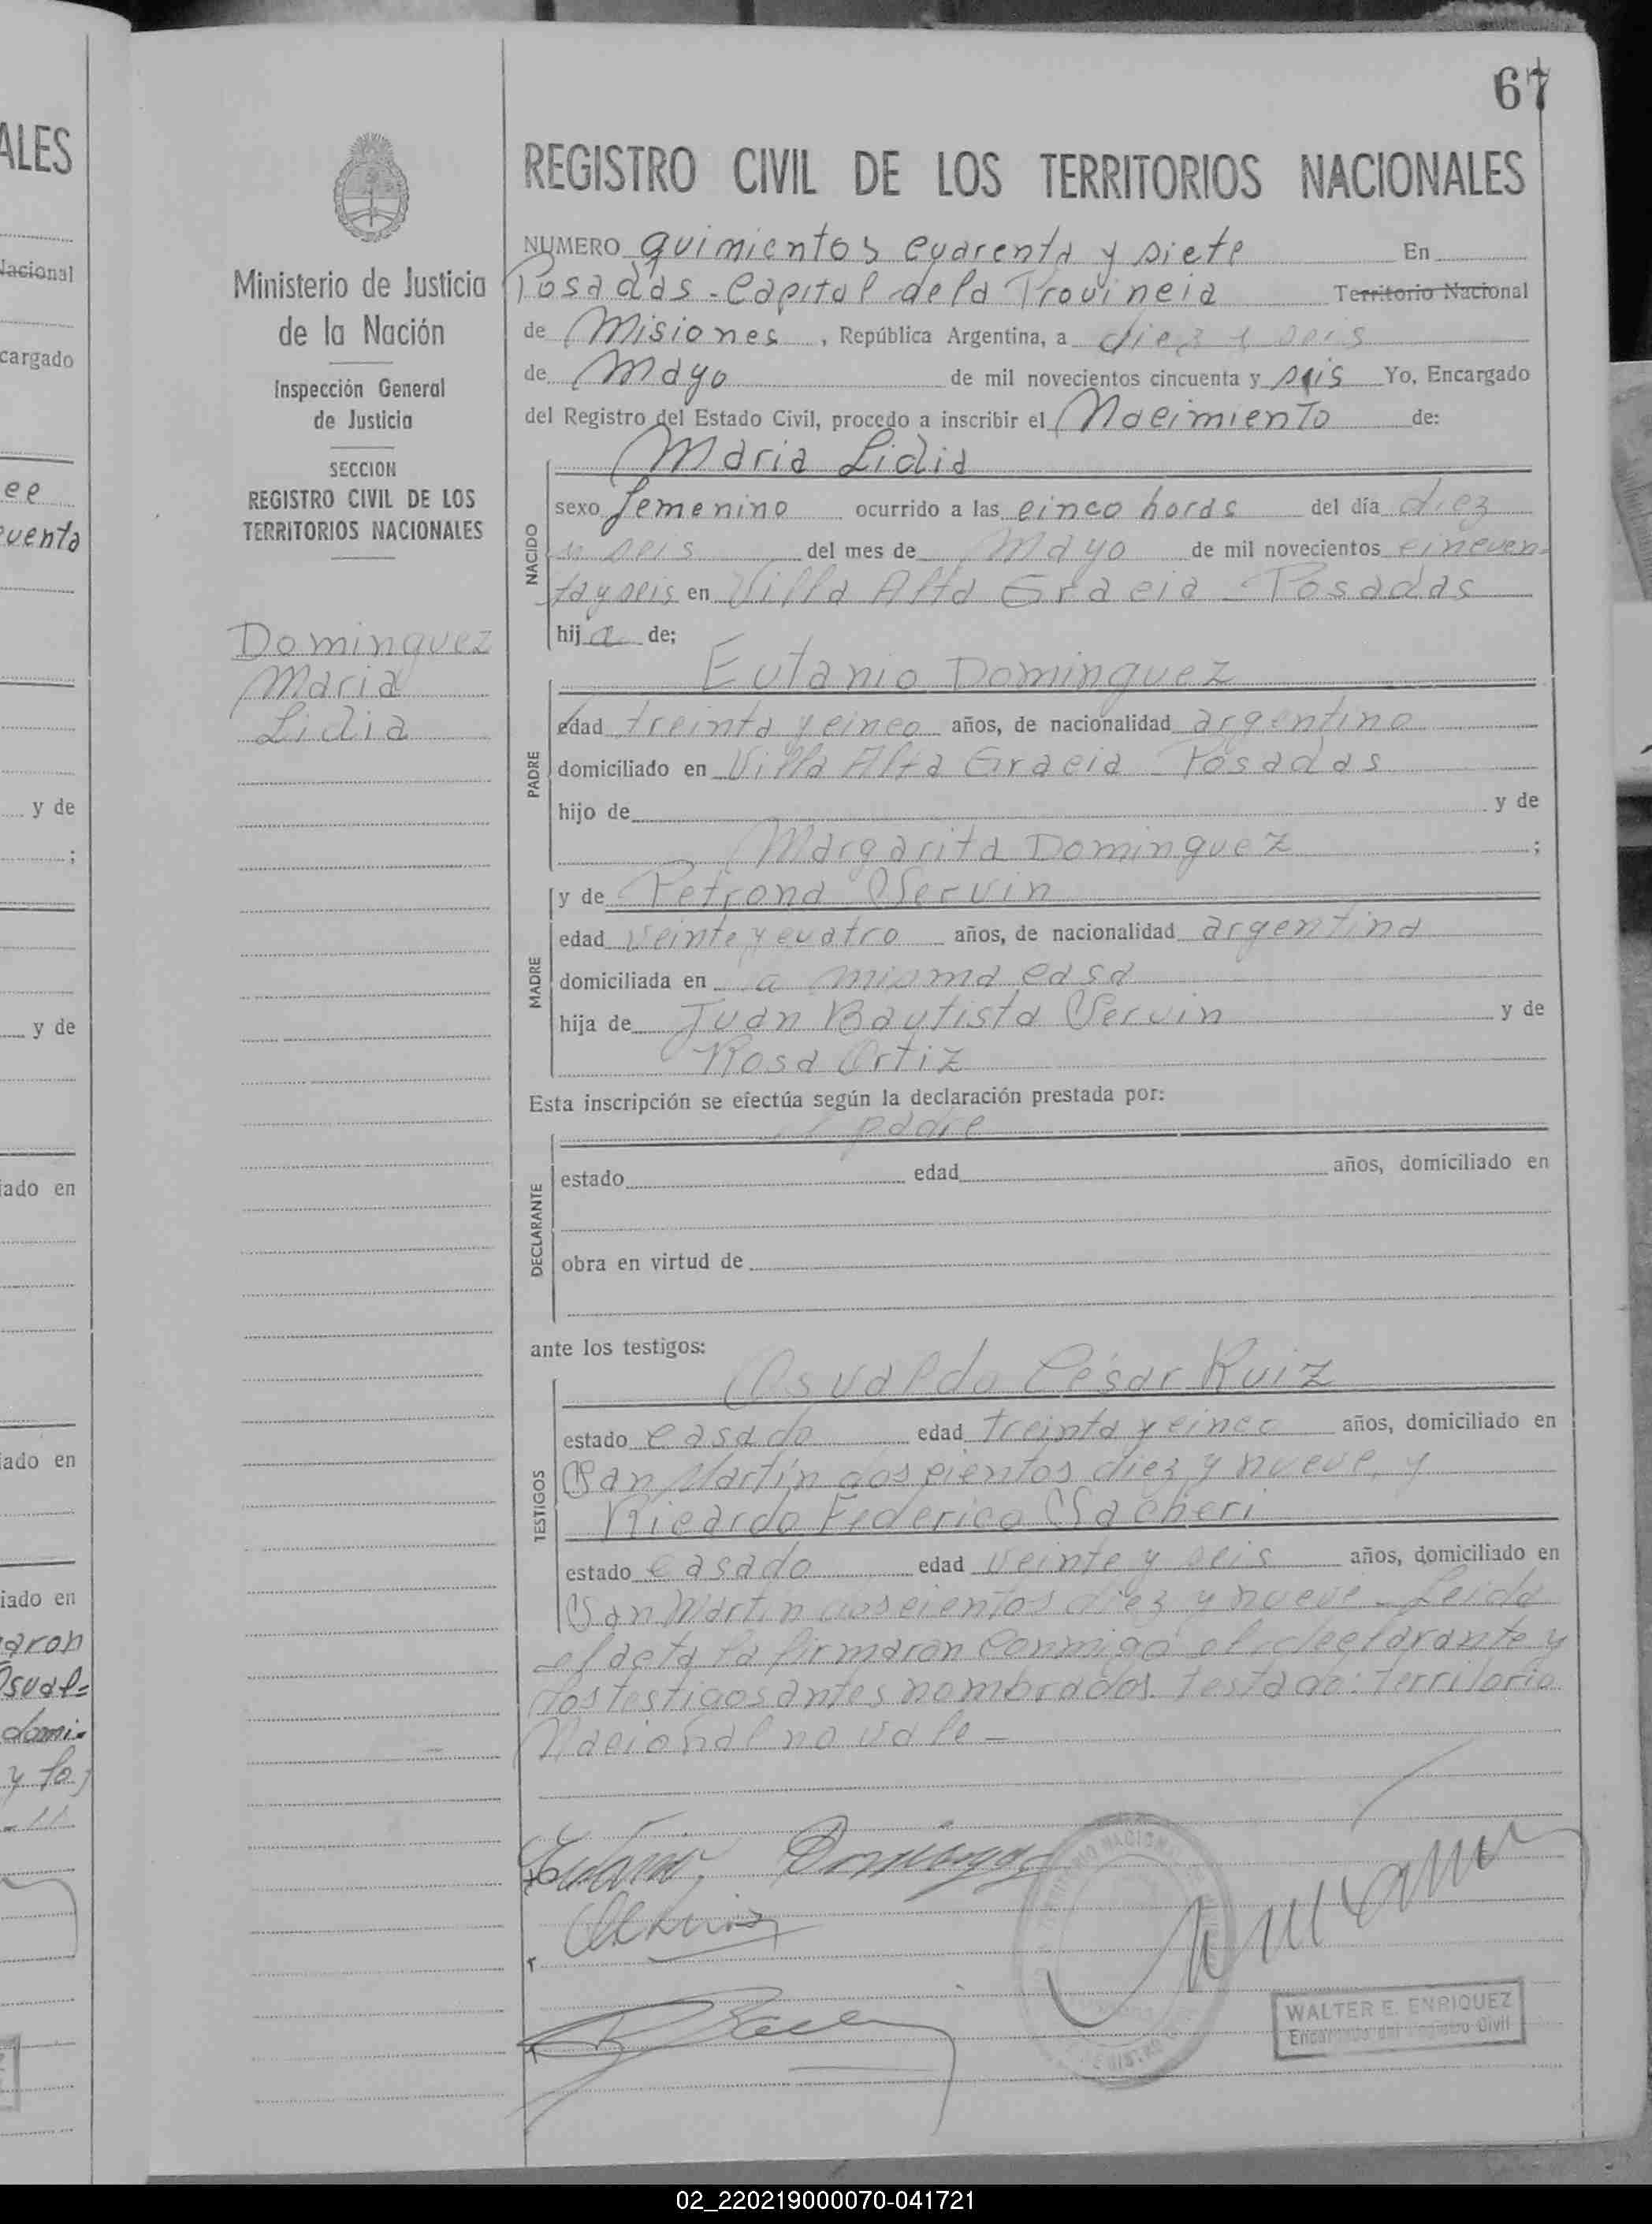 67
ALES
Nacional
cargado
ee
cuenta
y de
;
y de
iado en
iado en
iado en
aron
Osval=
domi-
y lo
Ministerio de Justicia
de la Nación
Inspección General
de Justicia
SECCION
REGISTRO CIVIL DE LOS
TERRITORIOS NACIONALES
Dominguez
Maria
Lidia
REGISTRO CIVIL DE LOS TERRITORIOS NACIONALES
NUMERO quinientos cuarenta y siete En
Posadas - Capital de la Provincia Territorio Nacional
de Misiones, República Argentina, a diez y seis
de Mayo de mil novecientos cincuenta y seis Yo, Encargado
del Registro del Estado Civil, procedo a inscribir el Nacimiento de:
Maria Lidia
NACIDO
sexo femenino ocurrido a las cinco horas del día diez
y seis del mes de Mayo de mil novecientos cincuen-
ta y seis en Villa Alta Gracia - Posadas
hija de;
Eutanio Dominguez
PADRE
edad treinta y cinco años, de nacionalidad argentino
domiciliado en Villa Alta Gracia Posadas
hijo de y de
Margarita Dominguez ;
y de Petrona Servin
MADRE
edad veinte y cuatro años, de nacionalidad argentina
domiciliada en a misma casa
hija de Juan Bautista Servin y de
Rosa Ortiz
Esta inscripción se efectúa según la declaración prestada por:
el padre
DECLARANTE
estado edad años, domiciliado en
obra en virtud de
ante los testigos:
Osvaldo César Ruiz
TESTIGOS
estado casado edad treinta y cinco años, domiciliado en
San Martín doscientos diez y nueve, y
Ricardo Federico Sacheri
estado casado edad veinte y seis años, domiciliado en
San Martin doscientos diez y nueve - Leida
el acta la firmaron conmigo el declarante y
los testigos antes nombrados. Testado: Territorio
Nacional no vale -
Dominguez
WALTER E. ENRIQUEZ
Encargado del Registro Civil
02_220219000070-041721